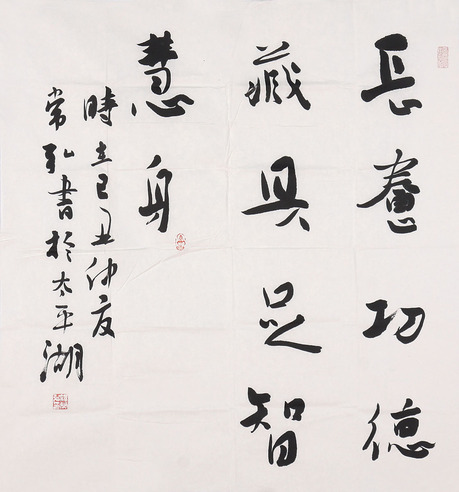 長養功德
藏具足智
慧身
時在己丑仲夏
常弘書於太平湖